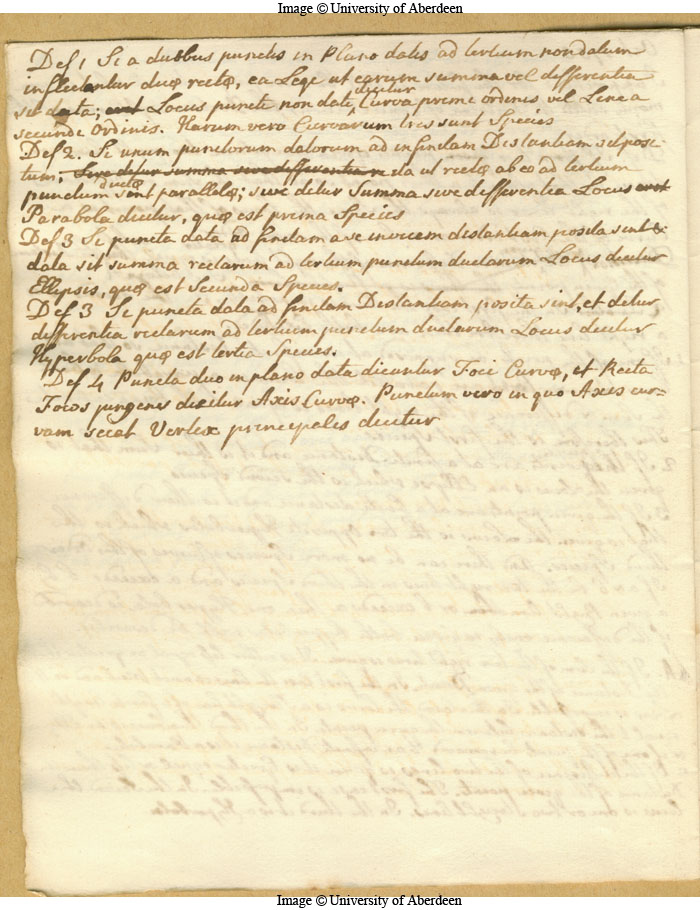 Image © University of Aberdeen
Def 1 Si a duobus punctis in Plano datis ad tertium non datum
inflectantur duæ rectæ, ea Lege ut earum summa vel differentia
sit data; erit Locus puncti non dati, dicitur Curva primi ordinis vel Linea
secundi Ordinis. Harum vero Curvarum tres sunt Species
Def 2. Si unum punctorum datorum ad infinitam Distantiam sit posi-
tum; Sive detur summa sive differentia re ita ut rectæ ab eo ad tertium
punctum ductæ sint parallelæ; sive detur Summa sive differentia Locus erit
Parabola dicitur, quæ est prima Species
Def 3 Si puncta data ad finitam a se invicem distantiam posita sint &
data sit summa rectarum ad tertium punctum ductarum Locus dicitur
Ellipsis, quæ est Secunda Species.
Def 3 Si puncta data ad finitam Distantiam posita sint, et detur
differentia rectarum ad tertium punctum ductarum Locus dicitur
Hyperbola quæ est tertia Species.
Def 4 Puncta duo in plano data dicuntur Foci Curvæ, et Recta
Focos jungens dicitur Axis Curvæ. Punctum vero in quo Axis cur-
vam secat Vertex principalis dicitur
Image © University of Aberdeen